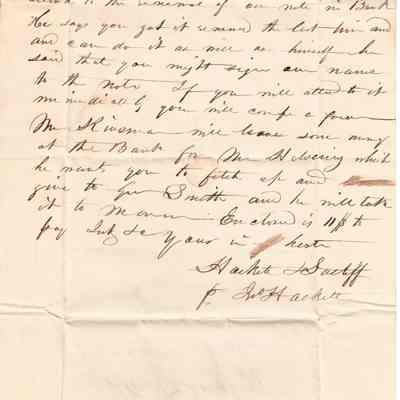 to the renewal of our note in Bank
He says you got it renewed the last time and
and can do it as well as himself he
said that you might sign our name
to the note If you will attend to it
immediately you will confer a favor
Mr will leave some money
at the Bank for Mr which
he wants you to fetch up and
give to Smith and he will take
it to Enclosed is 11$ to
pay Int &c Yours in haste
Hackett &
pr Jno Hackett